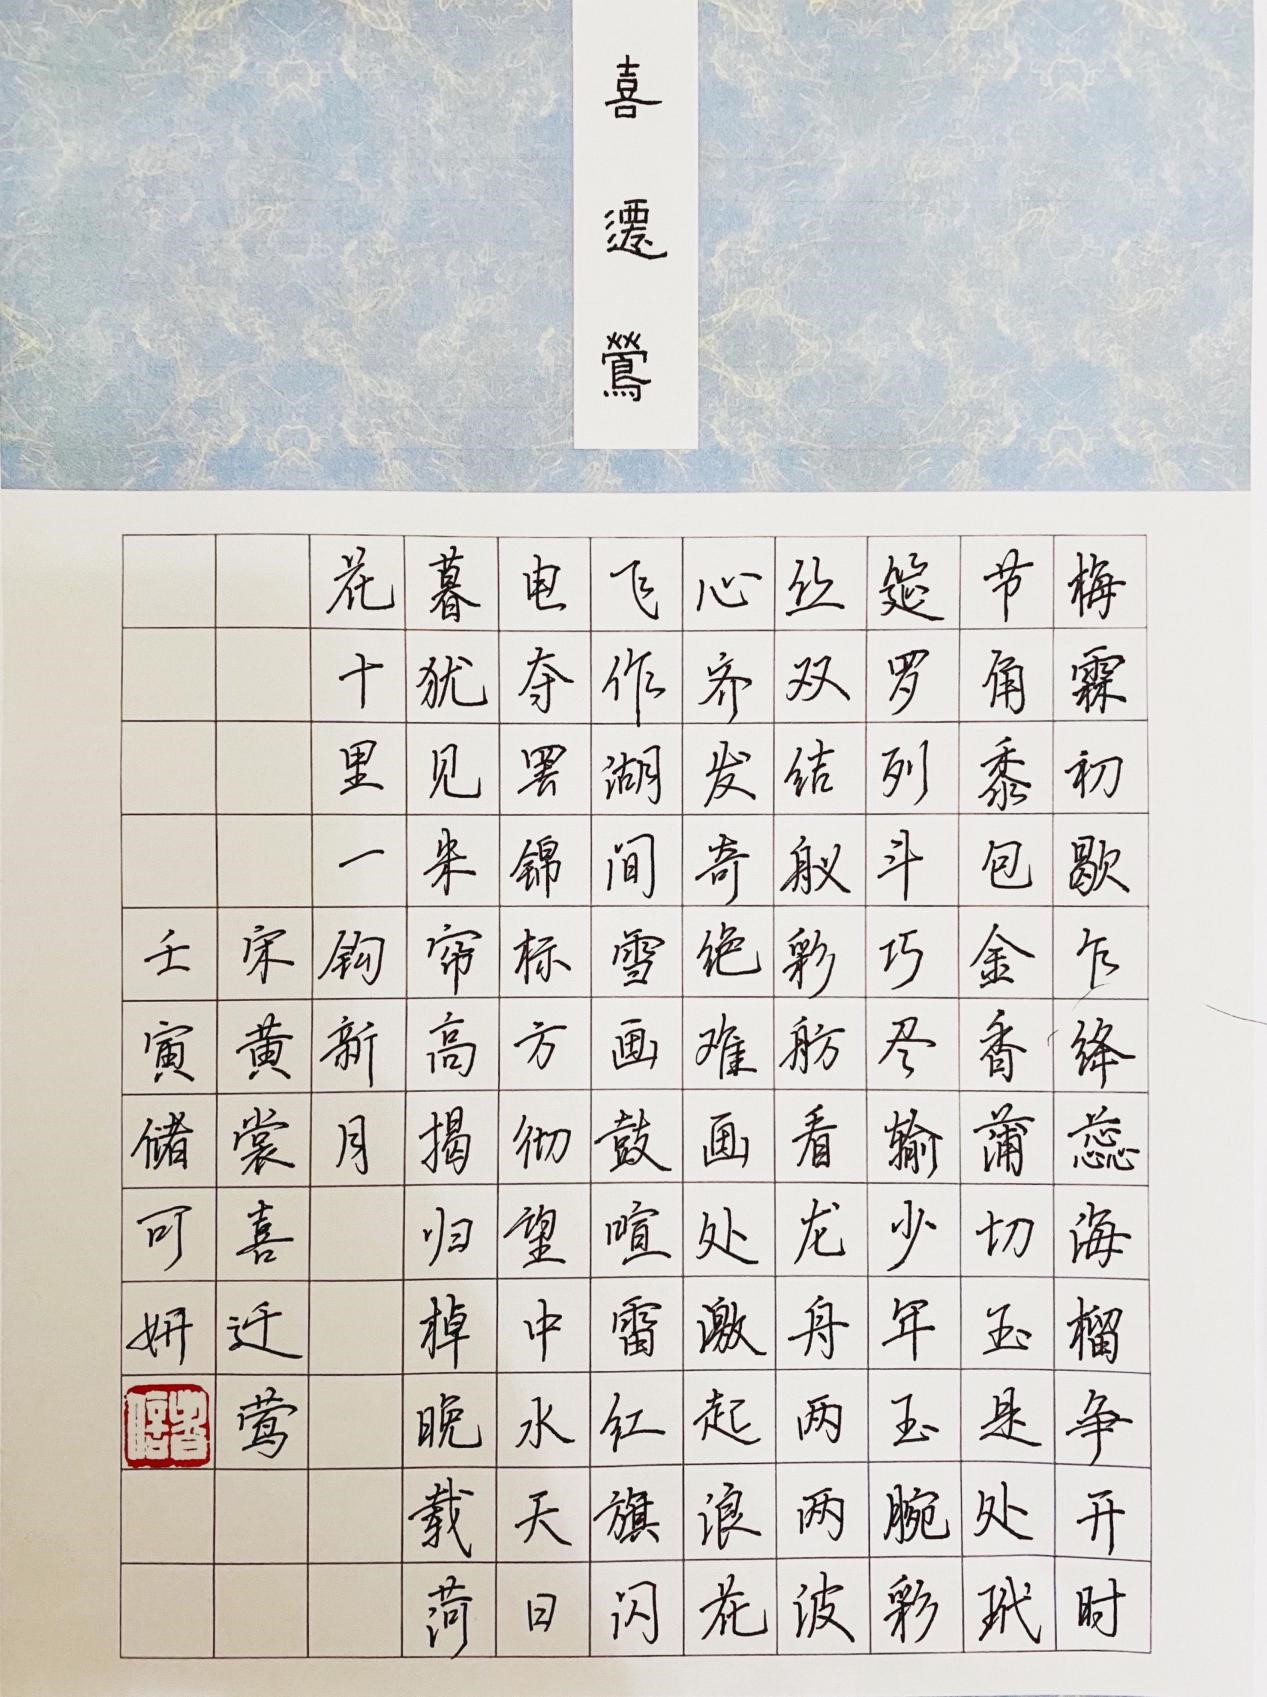 喜遷鶯
梅霖初歇乍绛蕊海榴争开时
节角黍包金香蒲切玉是处玳
筵罗列斗巧尽输少年玉腕彩
丝双结舣彩舫看龙舟两两波
心齐发奇绝难画处激起浪花
飞作湖间雪画鼓喧雷红旗闪
电夺罢锦标方彻望中水天日
暮犹见朱帘高揭归棹晚载荷
花十里一钩新月
宋黄裳喜迁莺
壬寅储可妍